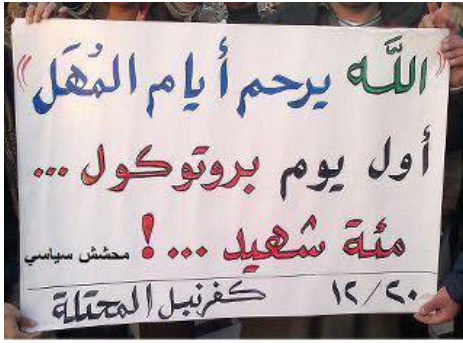 ((الله يرحم أيام المُهَل))
أول يوم بروتوكول ...
مئة شهيد ... ! محشش سياسي
١٢/٢٠ كفرنبل المحتلة